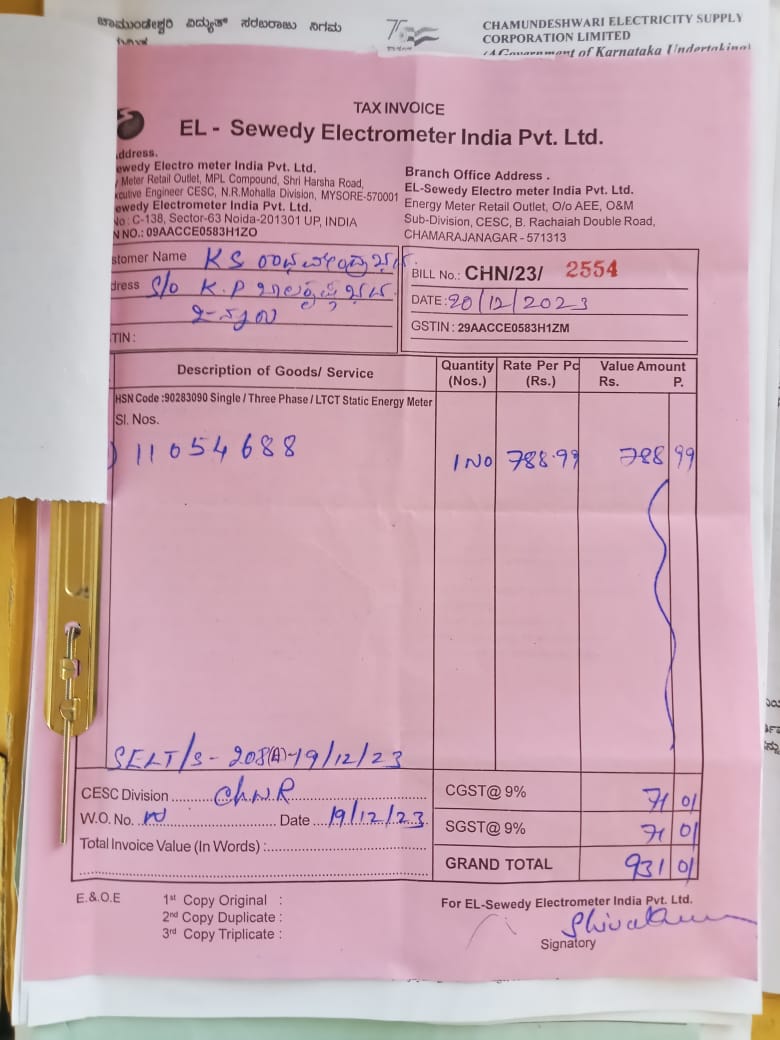 ಚಾಮುಂಡೇಶ್ವರಿ ವಿದ್ಯುತ್ ಸರಬರಾಜು ನಿಗಮ
CHAMUNDESHWARI ELECTRICITY SUPPLY
CORPORATION LIMITED
(A Government of Karnataka Undertaking)
TAX INVOICE
EL - Sewedy Electrometer India Pvt. Ltd.
ddress.
ewedy Electro meter India Pvt. Ltd.
Meter Retail Outlet, MPL Compound, Shri Harsha Road,
cutive Engineer CESC, N.R.Mohalla Division, MYSORE-570001
ewedy Electrometer Pvt. Ltd.
No : C-138, Sector-63 Noida-201301 UP, INDIA
N NO.: 09AACCE0583H1ZO
Branch Office Address .
EL-Sewedy Electro meter India Pvt. Ltd.
Energy Meter Retail Outlet, O/o AEE, O&M
Sub-Division, CESC, B. Rachaiah Double Road,
CHAMARAJANAGAR - 571313
stomer Name K S
dress S/o K.P
TIN :
BILL No.: CHN/23/ 2554
DATE : 20/12/2023
GSTIN : 29AACCE0583H1ZM
Description of Goods/ Service Quantity (Nos.) Rate Per Pc (Rs.) Value Amount Rs. P.
HSN Code :90283090 Single / Three Phase / LTCT Static Energy Meter
Sl. Nos.
) 11054688 1 NO 788.99 788 99
SELT/S - 208(A)-19/12/23
CESC Division ChNR
W.O. No. Date 19/12/23
Total Invoice Value (In Words) :
CGST@ 9% 71 01
SGST@ 9% 71 01
GRAND TOTAL 931 01
E.&.O.E
1st Copy Original :
2nd Copy Duplicate :
3rd Copy Triplicate :
For EL-Sewedy Electrometer India Pvt. Ltd.
Signatory